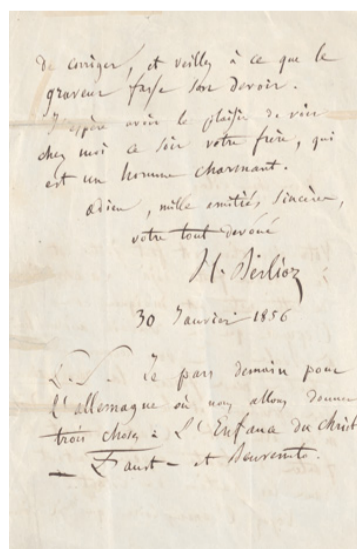 de corriger, et veillez à ce que le
graveur fasse son devoir.
J'espère avoir le plaisir de voir
chez moi ce soir votre frère, qui
est un homme charmant.
adieu, mille amitiés sincères,
votre tout dévoué
H. Berlioz
30 Janvier 1856
P.S. Je pars demain pour
l'allemagne où nous allons donner
trois choses : L'Enfance du Christ
— Faust — et Benvenuto.